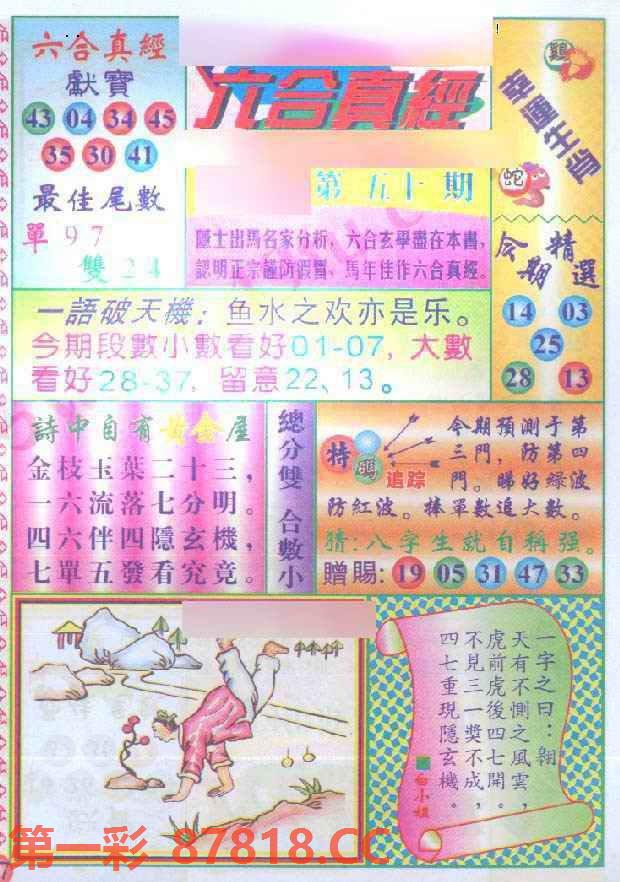 六合真經
獻寶
43 04 34 45
35 30 41
最佳尾數
單97
雙24
六合真經
第五十期
隱士出馬名家分析，六合玄學盡在本書，
認明正宗謹防假冒，馬年佳作六合真經。
幸運生肖
鷄
蛇
今期精選
14 03
25
28 13
一語破天機：鱼水之欢亦是乐。
今期段數小數看好01-07，大數
看好28-37，留意22、13。
詩中自有黃金屋
金枝玉葉二十三，
一六流落七分明。
四六伴四隱玄機，
七單五發看究竟。
總分雙 合數小
特碼追踪
今期預測于第
三門，防第四
門。睇好綠波
防紅波。捧單數追大數。
猜：八字生就自稱强。
贈賜：19 05 31 47 33
一字之曰：翱
天有不惻之風雲，
虎前虎後四七開。
不見三一獎不成，
四七重現隱玄機。
白小姐
第一彩 87818.CC